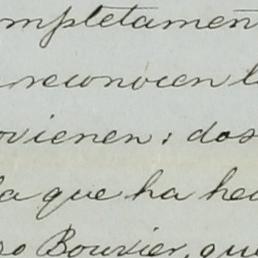 ompletamen
reconocen l
ovienen; dos
la que ha hec
ro Bouvier, que